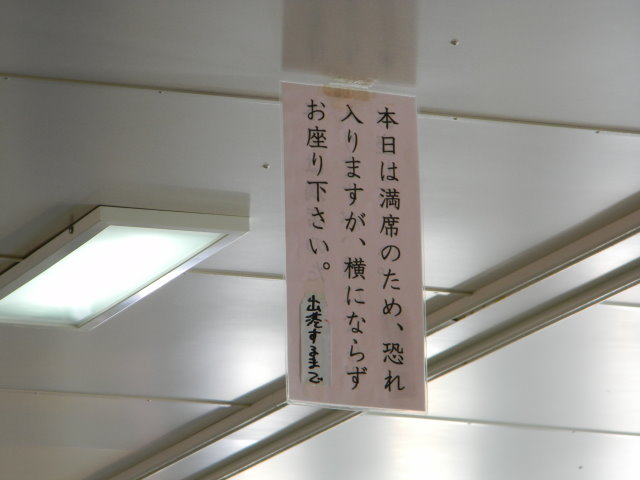 本日は満席のため、恐れ
入りますが、横にならず
お座り下さい。
出港するまで